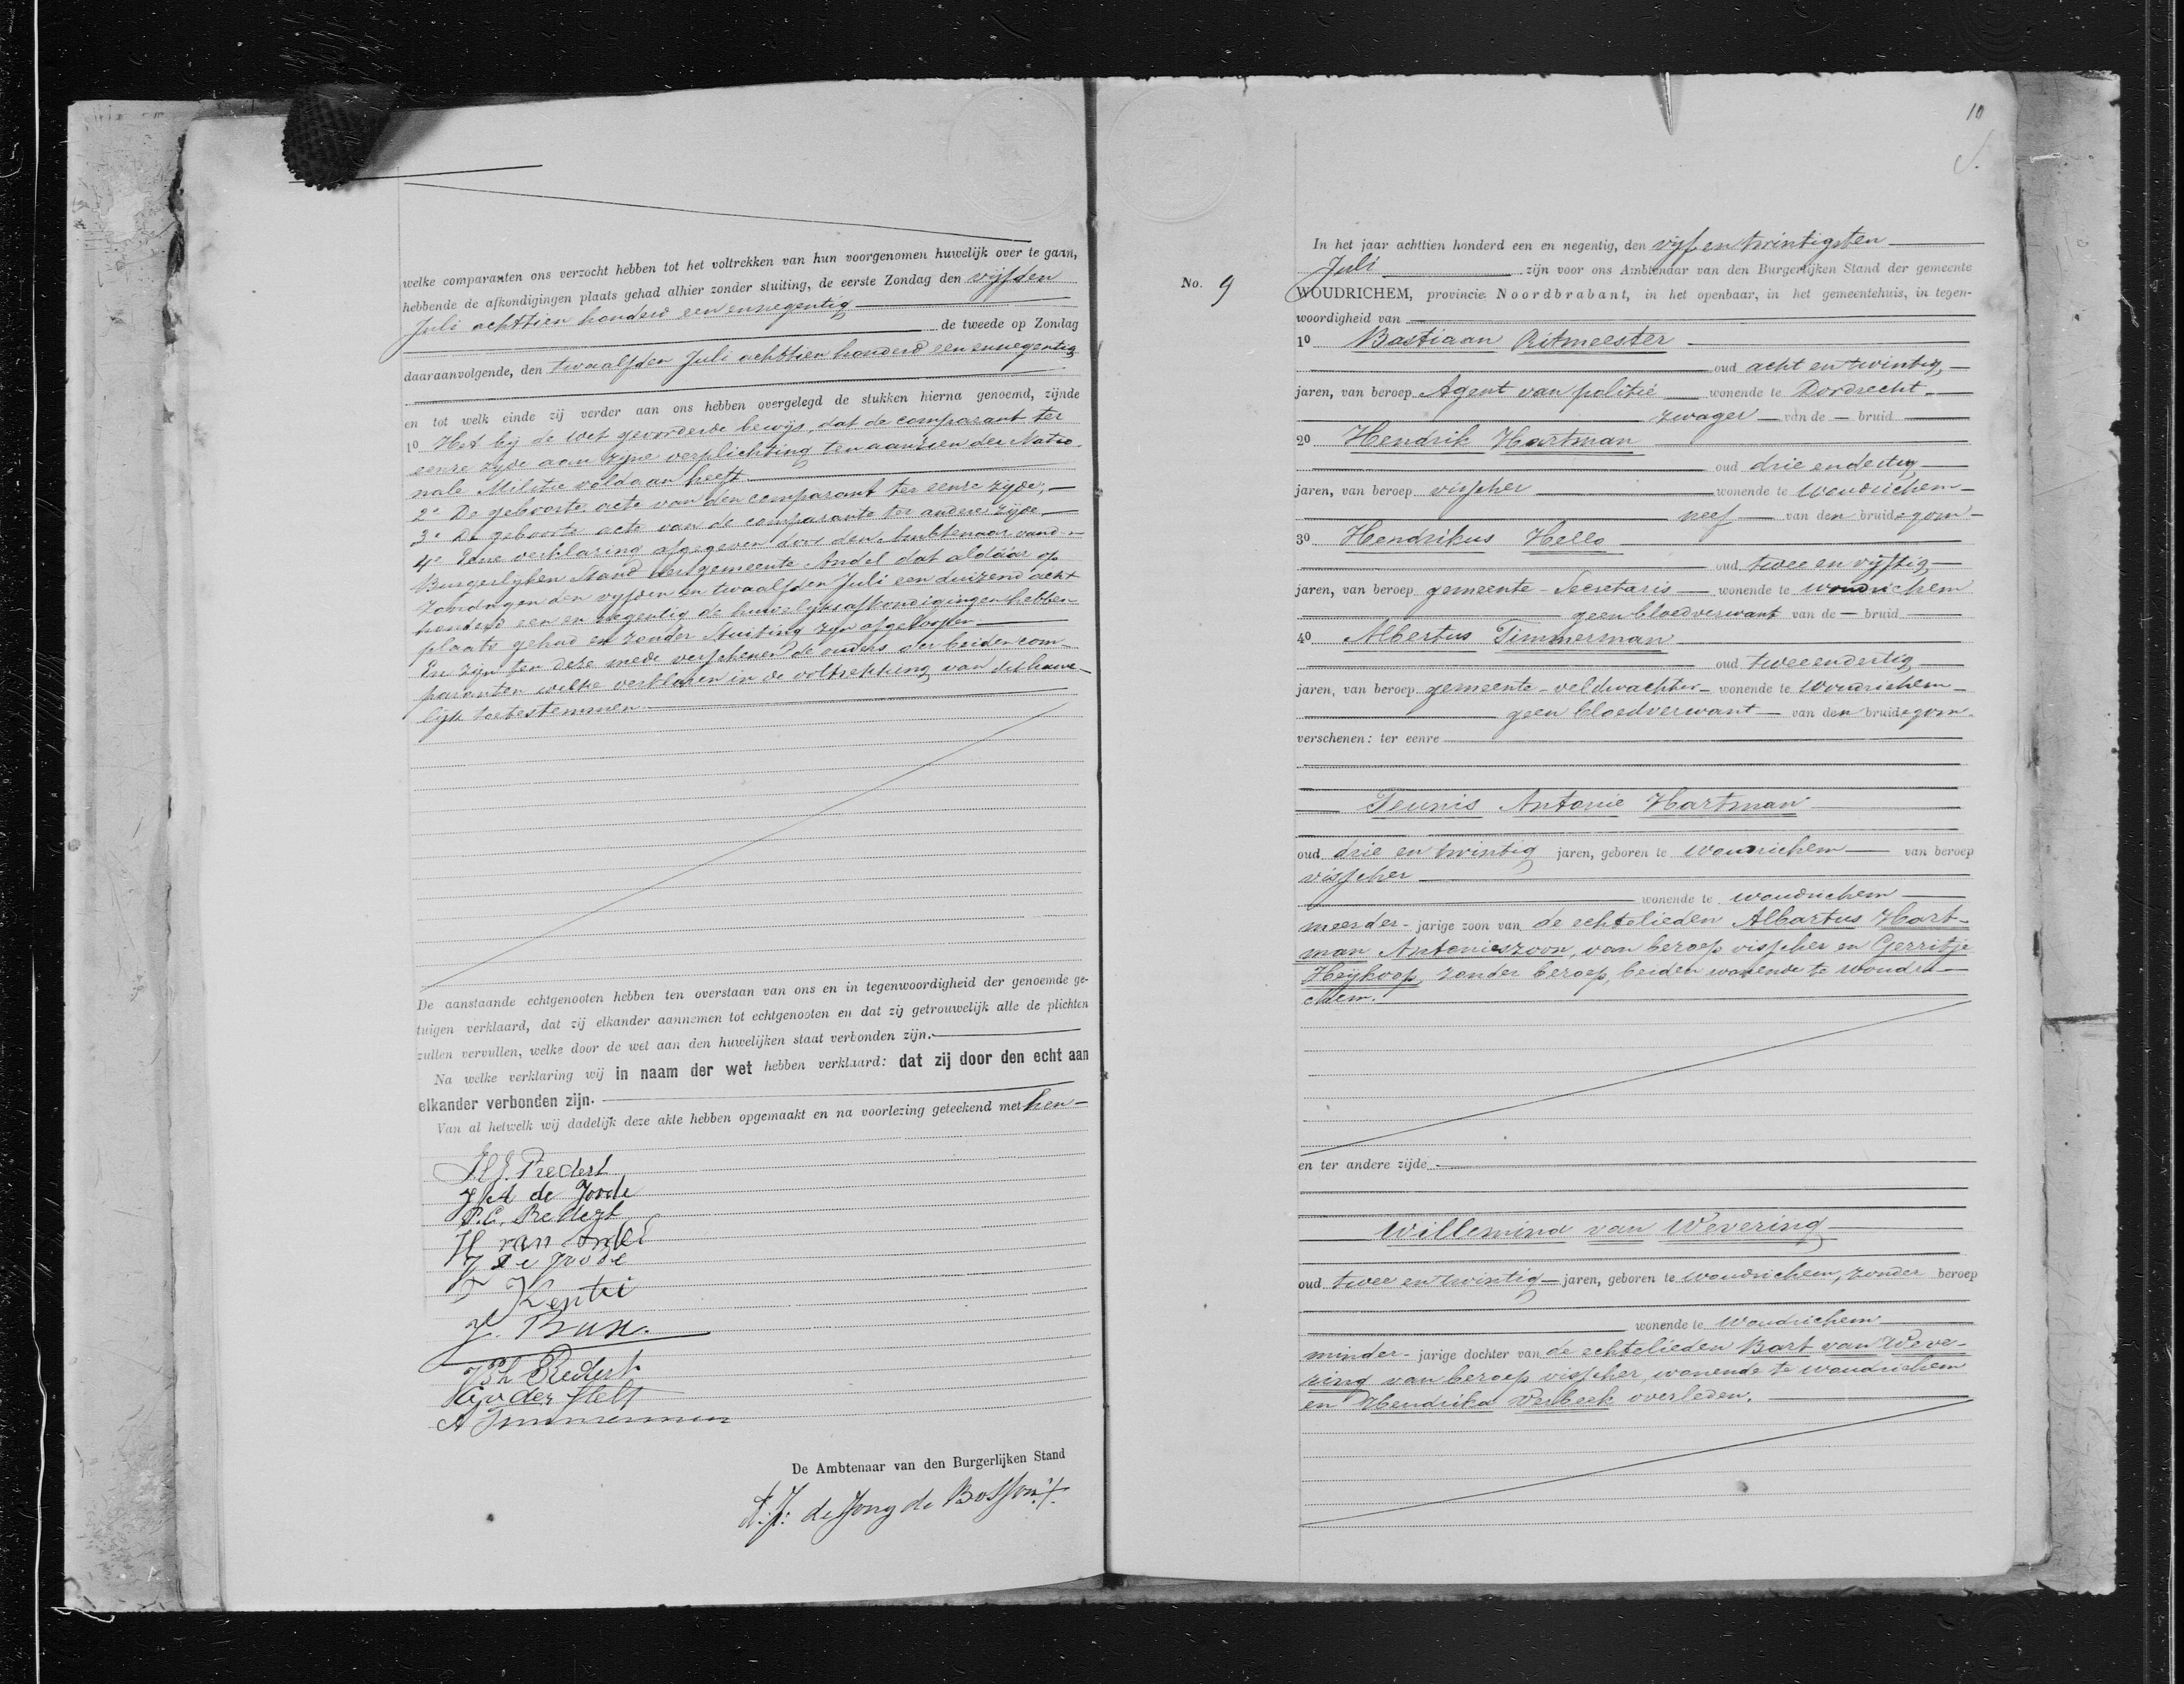 welke comparanten ons verzocht hebben tot het voltrekken van hun voorgenomen huwelijk over te gaan,
hebbende de afkondigingen plaats gehad alhier zonder stuiting, de eerste Zondag den vijfden
Juli achttien honderd een en negentig
de tweede op Zondag
daaraanvolgende, den twaalfden Juli achttien honderd een en negentig
en tot welk einde zij verder aan ons hebben overgelegd de stukken hierna genoemd, zijnde
1o Het bij de wet gevorderde bewijs, dat de comparant ter
eenre zijde aan zijne verplichting ten aanzien der Natio
nale Militie voldaan heeft
2o De geboorte acte van den comparant ter eenre zijde,
3o De geboorte acte van de comparante ter andere zijde
4o Eene verklaring afgegeven door den Ambtenaar van d
Burgerlijken Stand der gemeente Andel dat aldáár op
Zondagen den vijfden en twaalfden Juli een duizend acht
honderd een en negentig de huwelijksafkondigingen hebben
plaats gehad en zonder stuiting zijn afgeloopen
En zijn ten deze mede verschenen de ouders der beiden com-
paranten welke verklaren in de voltrekking van dit huwe-
lijk toetestemmen
De aanstaande echtgenooten hebben ten overstaan van ons en in tegenwoordigheid der genoemde ge-
tuigen verklaard, dat zij elkander aannemen tot echtgenooten en dat zij getrouwelijk alle de plichten
zullen vervullen, welke door de wet aan den huwelijken staat verbonden zijn.
Na welke verklaring wij in naam der wet hebben verklaard: dat zij door den echt aan
elkander verbonden zijn.
Van al hetwelk wij dadelijk deze akte hebben opgemaakt en na voorlezing geteekend met hen
Redert
J A de Joode
P. C. Redert
H van Andel
J de Joode
Redert
v der Stelt
A Timmerman
De Ambtenaar van den Burgerlijken Stand
de Jong de
10
No. 9
In het jaar achttien honderd een en negentig, den vijf en twintigsten
Juli zijn voor ons Ambtenaar van den Burgerlijken Stand der gemeente
WOUDRICHEM, provincie Noordbrabant, in het openbaar, in het gemeentehuis, in tegen-
woordigheid van
1o Bastiaan Ritmeester
oud acht en twintig
jaren, van beroep Agent van politie wonende te Dordrecht
zwager van de bruid
2o Hendrik Hartman
oud drie en dertig
jaren, van beroep visscher wonende te Woudrichem
neef van den bruidegom
3o Hendrikus Hello
oud twee en vijftig
jaren, van beroep gemeente-Secretaris wonende te Woudrichem
geen bloedverwant van de bruid
4o Albertus Timmerman
oud twee en dertig
jaren, van beroep gemeente-veldwachter wonende te Woudrichem
geen bloedverwant van den bruidegom
verschenen: ter eenre
Teunis Antonie Hartman
oud drie en twintig jaren, geboren te Woudrichem van beroep
visscher
wonende te Woudrichem
meerder-jarige zoon van de echtelieden Albartus Hart-
man Antonieszoon, van beroep visscher en Gerritje
Heijkoop, zonder beroep, beiden wonende te Woudri-
chem.
en ter andere zijde
Willemina van Wevering
oud twee en twintig jaren, geboren te Woudrichem, zonder beroep
wonende te Woudrichem
minder-jarige dochter van de echtelieden Bart van Weve-
ring van beroep visscher, wonende te Woudrichem
en Hendrika Verbeek overleden.